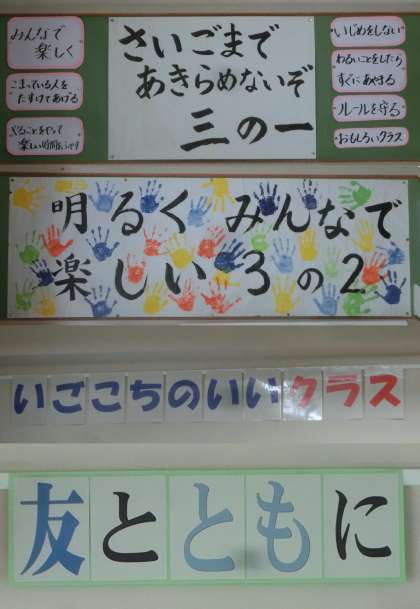 みんなで
楽しく
こまっている人を
たすけてあげる
やることをやって
楽しい時間を
さいごまで
あきらめないぞ
三の一
いじめをしない
わるいことをしたら
すぐにあやまる
ルールを守る
おもしろいクラス
明るくみんなで
楽しい3の2
いごこちのいいクラス
友とともに